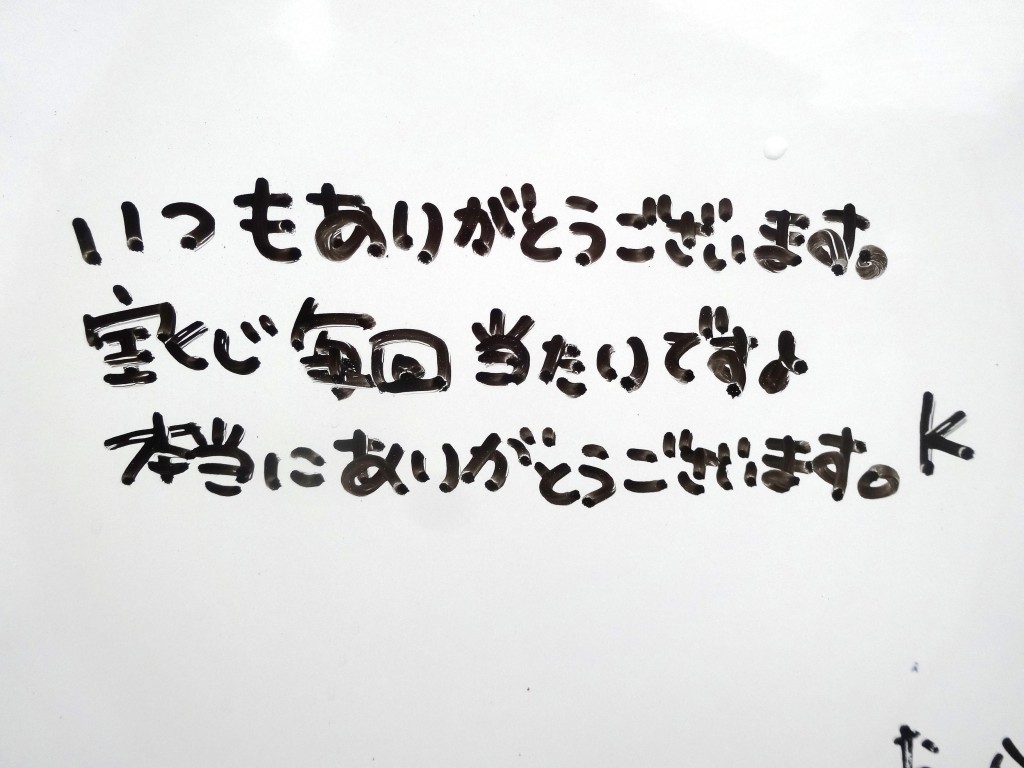 いつもありがとうございます。
宝くじ毎回当たいです♪
本当にありがとうございます。K